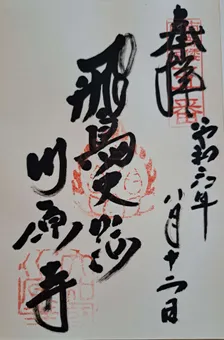 奉拝
令和六年八月十二日
飛鳥史跡
川原寺